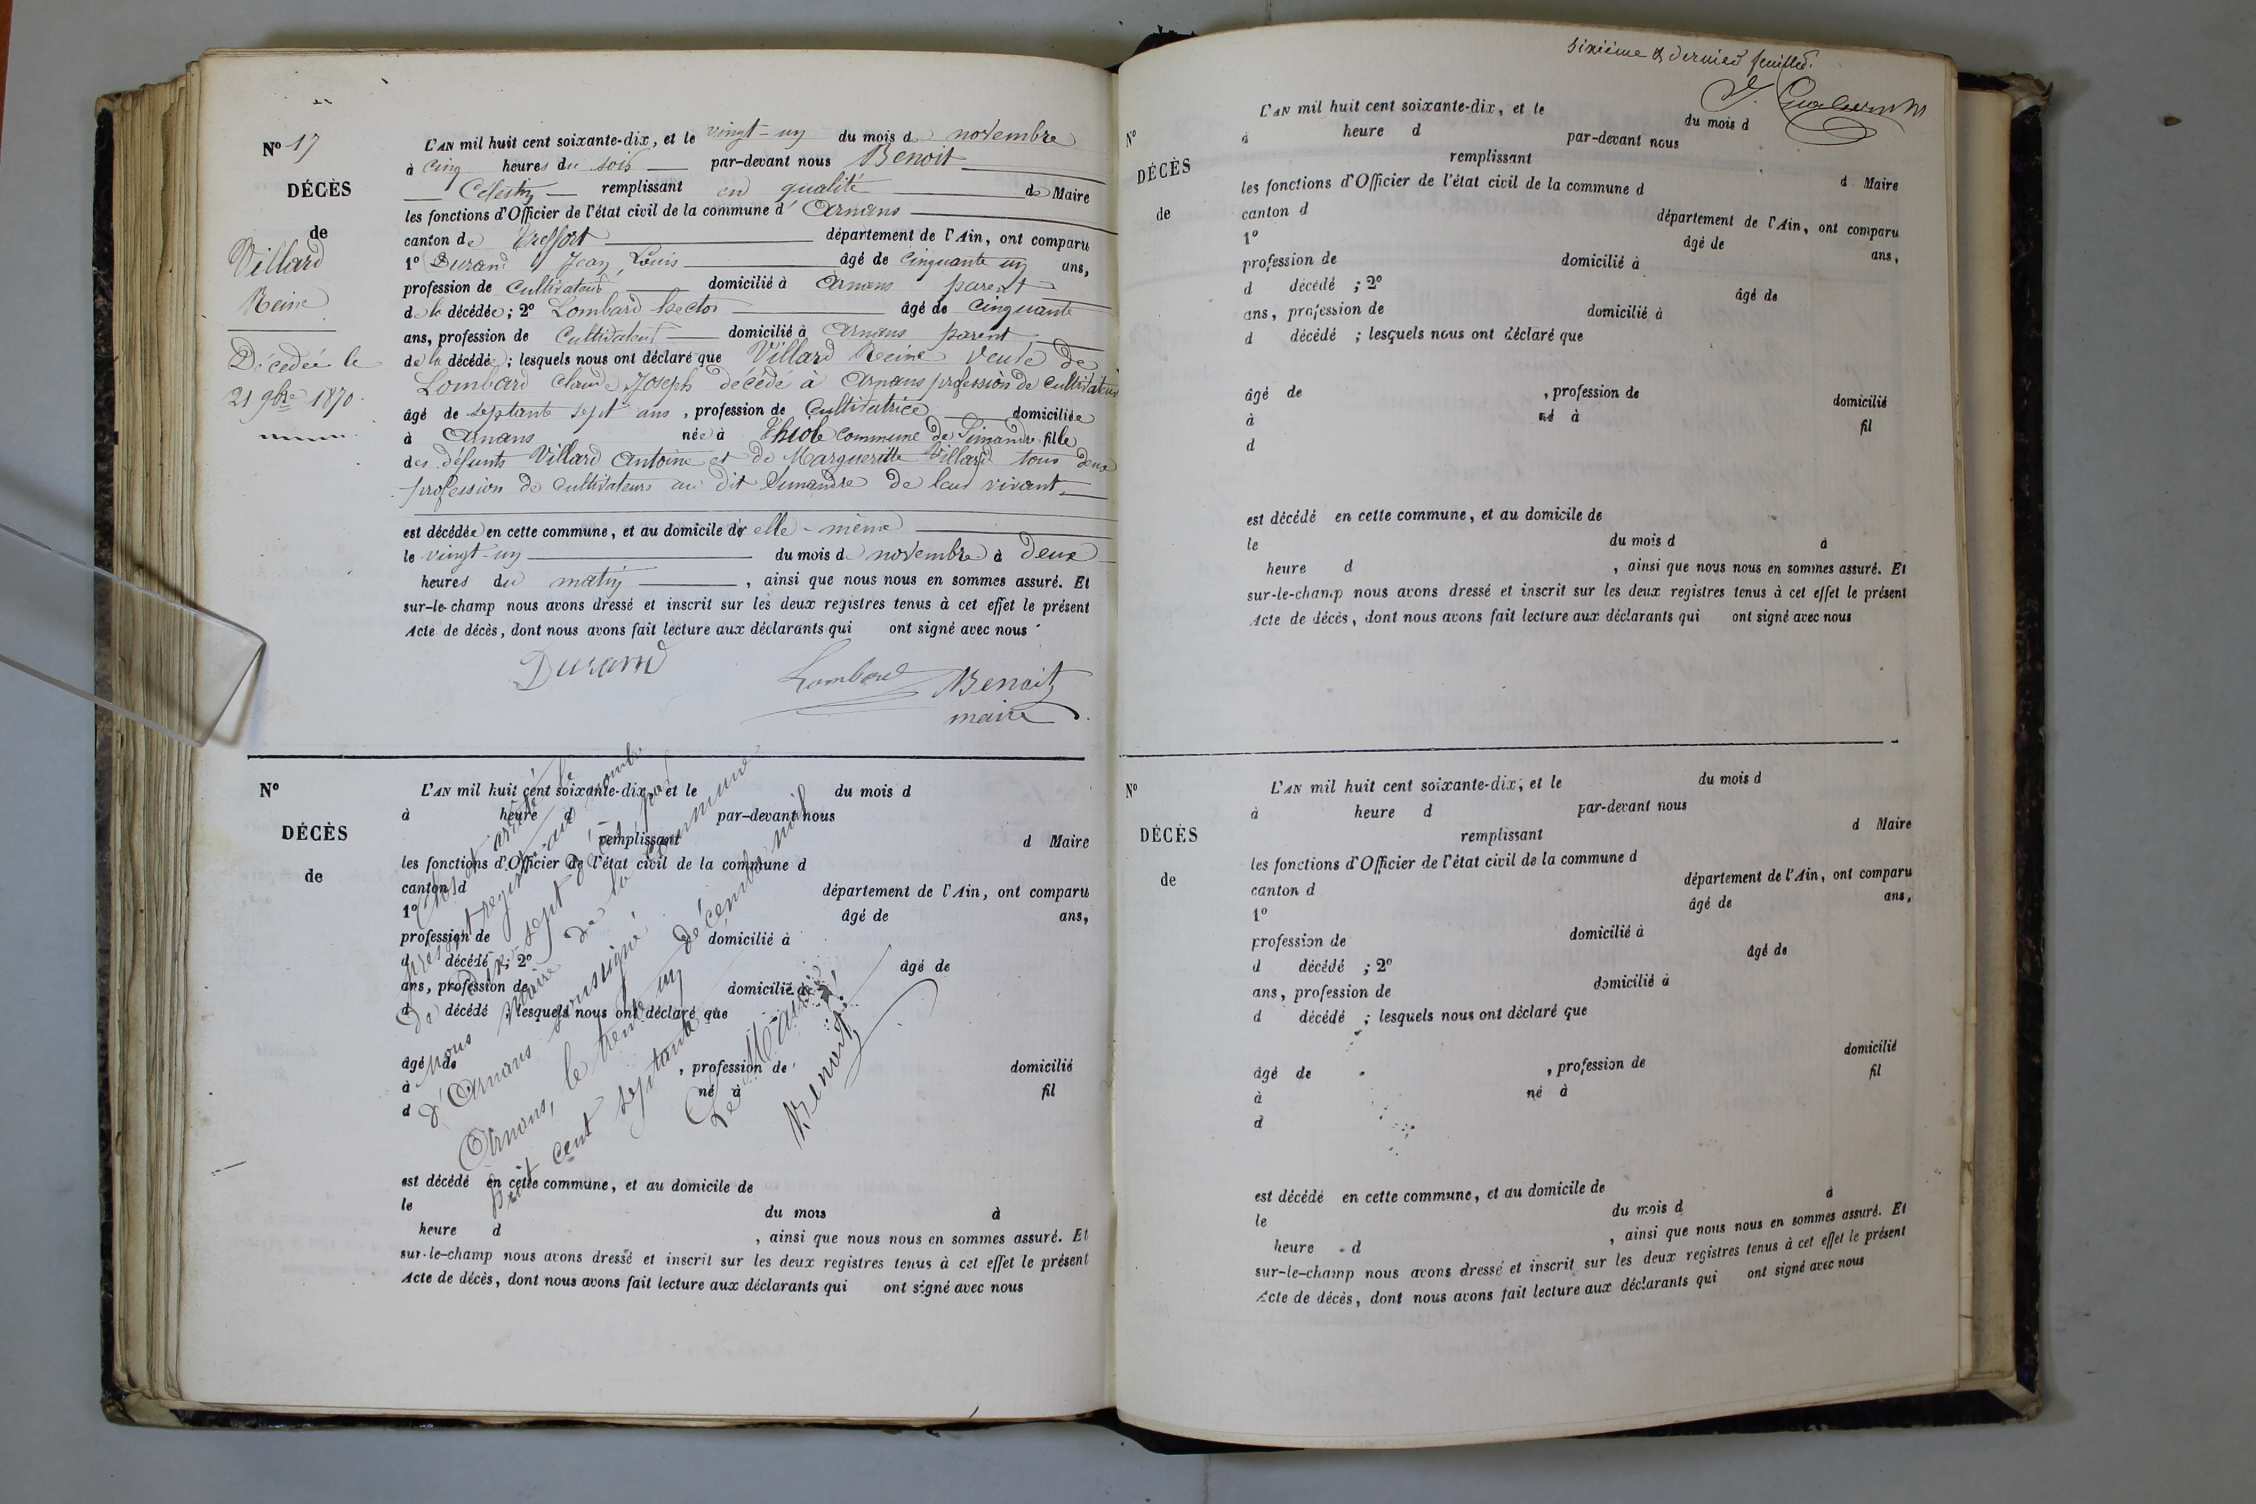 Nº 17
DÉCÈS
de
Villard
Reine
Décédée le
21 9bre 1870.
L'AN mil huit cent soixante-dix, et le vingt-un du mois de novembre
à cinq heures du soir par-devant nous Benoit
Celestin remplissant en qualité de Maire
les fonctions d'Officier de l'état civil de la commune d'Arnans
canton de Treffort département de l'Ain, ont comparu
1º Durand Jean Louis âgé de cinquante un ans,
profession de Cultivateur domicilié à Arnans parent
de la décédée; 2º Lombard hector âgé de cinquante
ans, profession de Cultivateur domicilié à Arnans parent
de la décédée; lesquels nous ont déclaré que Villard Reine veuve de
Lombard Claude Joseph décédé à Arnans profession de cultivateur
âgé de septante sept ans, profession de Cultivatrice domiciliée
à Arnans née à Thiole commune de Simandre fille
des défunts Villard Antoine et de Margueritte Villard tous deux
profession de cultivateurs au dit Simandre de leur vivant
est décédée en cette commune, et au domicile de elle-même
le vingt-un du mois de novembre à deux
heures du matin, ainsi que nous nous en sommes assuré. Et
sur-le-champ nous avons dressé et inscrit sur les deux registres tenus à cet effet le présent
Acte de décès, dont nous avons fait lecture aux déclarants qui ont signé avec nous
Durand Lombard Benoit
maire
Nº
DÉCÈS
de
L'AN mil huit cent soixante-dix, et le du mois d
à heure d par-devant nous
remplissant d Maire
les fonctions d'Officier de l'état civil de la commune d
canton d département de l'Ain, ont comparu
1º âgé de ans,
profession de domicilié à
d décédé ; 2º âgé de
ans, profession de domicilié à
d décédé ; lesquels nous ont déclaré que
âgé de , profession de domicilié
à né à fil
d
est décédé en cette commune, et au domicile de
le du mois à
heure d , ainsi que nous nous en sommes assuré. Et
sur-le-champ nous avons dressé et inscrit sur les deux registres tenus à cet effet le présent
Acte de décès, dont nous avons fait lecture aux déclarants qui ont signé avec nous
Clos et arrêté le
présent registre au nombre
de dix-sept décès par
Nous Maire de la commune
d'Arnans soussigné
Arnans, le trente un décembre mil
huit cent septante
Le Maire
Benoit
sixième & dernier feuillet.
Nº
DÉCÈS
de
L'AN mil huit cent soixante-dix, et le du mois d
à heure d par-devant nous
remplissant d Maire
les fonctions d'Officier de l'état civil de la commune d
canton d département de l'Ain, ont comparu
1º âgé de ans,
profession de domicilié à
d décédé ; 2º âgé de
ans, profession de domicilié à
d décédé ; lesquels nous ont déclaré que
âgé de , profession de domicilié
à né à fil
d
est décédé en cette commune, et au domicile de
le du mois d à
heure d , ainsi que nous nous en sommes assuré. Et
sur-le-champ nous avons dressé et inscrit sur les deux registres tenus à cet effet le présent
Acte de décès, dont nous avons fait lecture aux déclarants qui ont signé avec nous
Nº
DÉCÈS
de
L'AN mil huit cent soixante-dix, et le du mois d
à heure d par-devant nous
remplissant d Maire
les fonctions d'Officier de l'état civil de la commune d
canton d département de l'Ain, ont comparu
1º âgé de ans,
profession de domicilié à
d décédé ; 2º âgé de
ans, profession de domicilié à
d décédé ; lesquels nous ont déclaré que
âgé de , profession de domicilié
à né à fil
d
est décédé en cette commune, et au domicile de
le du mois d à
heure d , ainsi que nous nous en sommes assuré. Et
sur-le-champ nous avons dressé et inscrit sur les deux registres tenus à cet effet le présent
Acte de décès, dont nous avons fait lecture aux déclarants qui ont signé avec nous